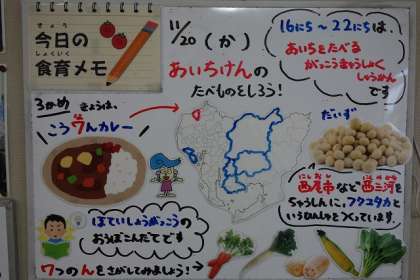 きょう
今日の
しょくいく
食育メモ
11/20(か)
あいちけんの
たべものをしろう!
16にち~22にちは、
あいちをたべる
がっこうきゅうしょく
しゅうかん
です
3かめ きょうは、
ころ7んカレー
だいず
にしおし
西尾市など西三河を
にしみかわ
ちゅうしんに、フクユタカと
いうひんしゅをつくっています。
ほていしょうがっこうの
おうぼこんだてです
7つのんをさがしてみましょう!